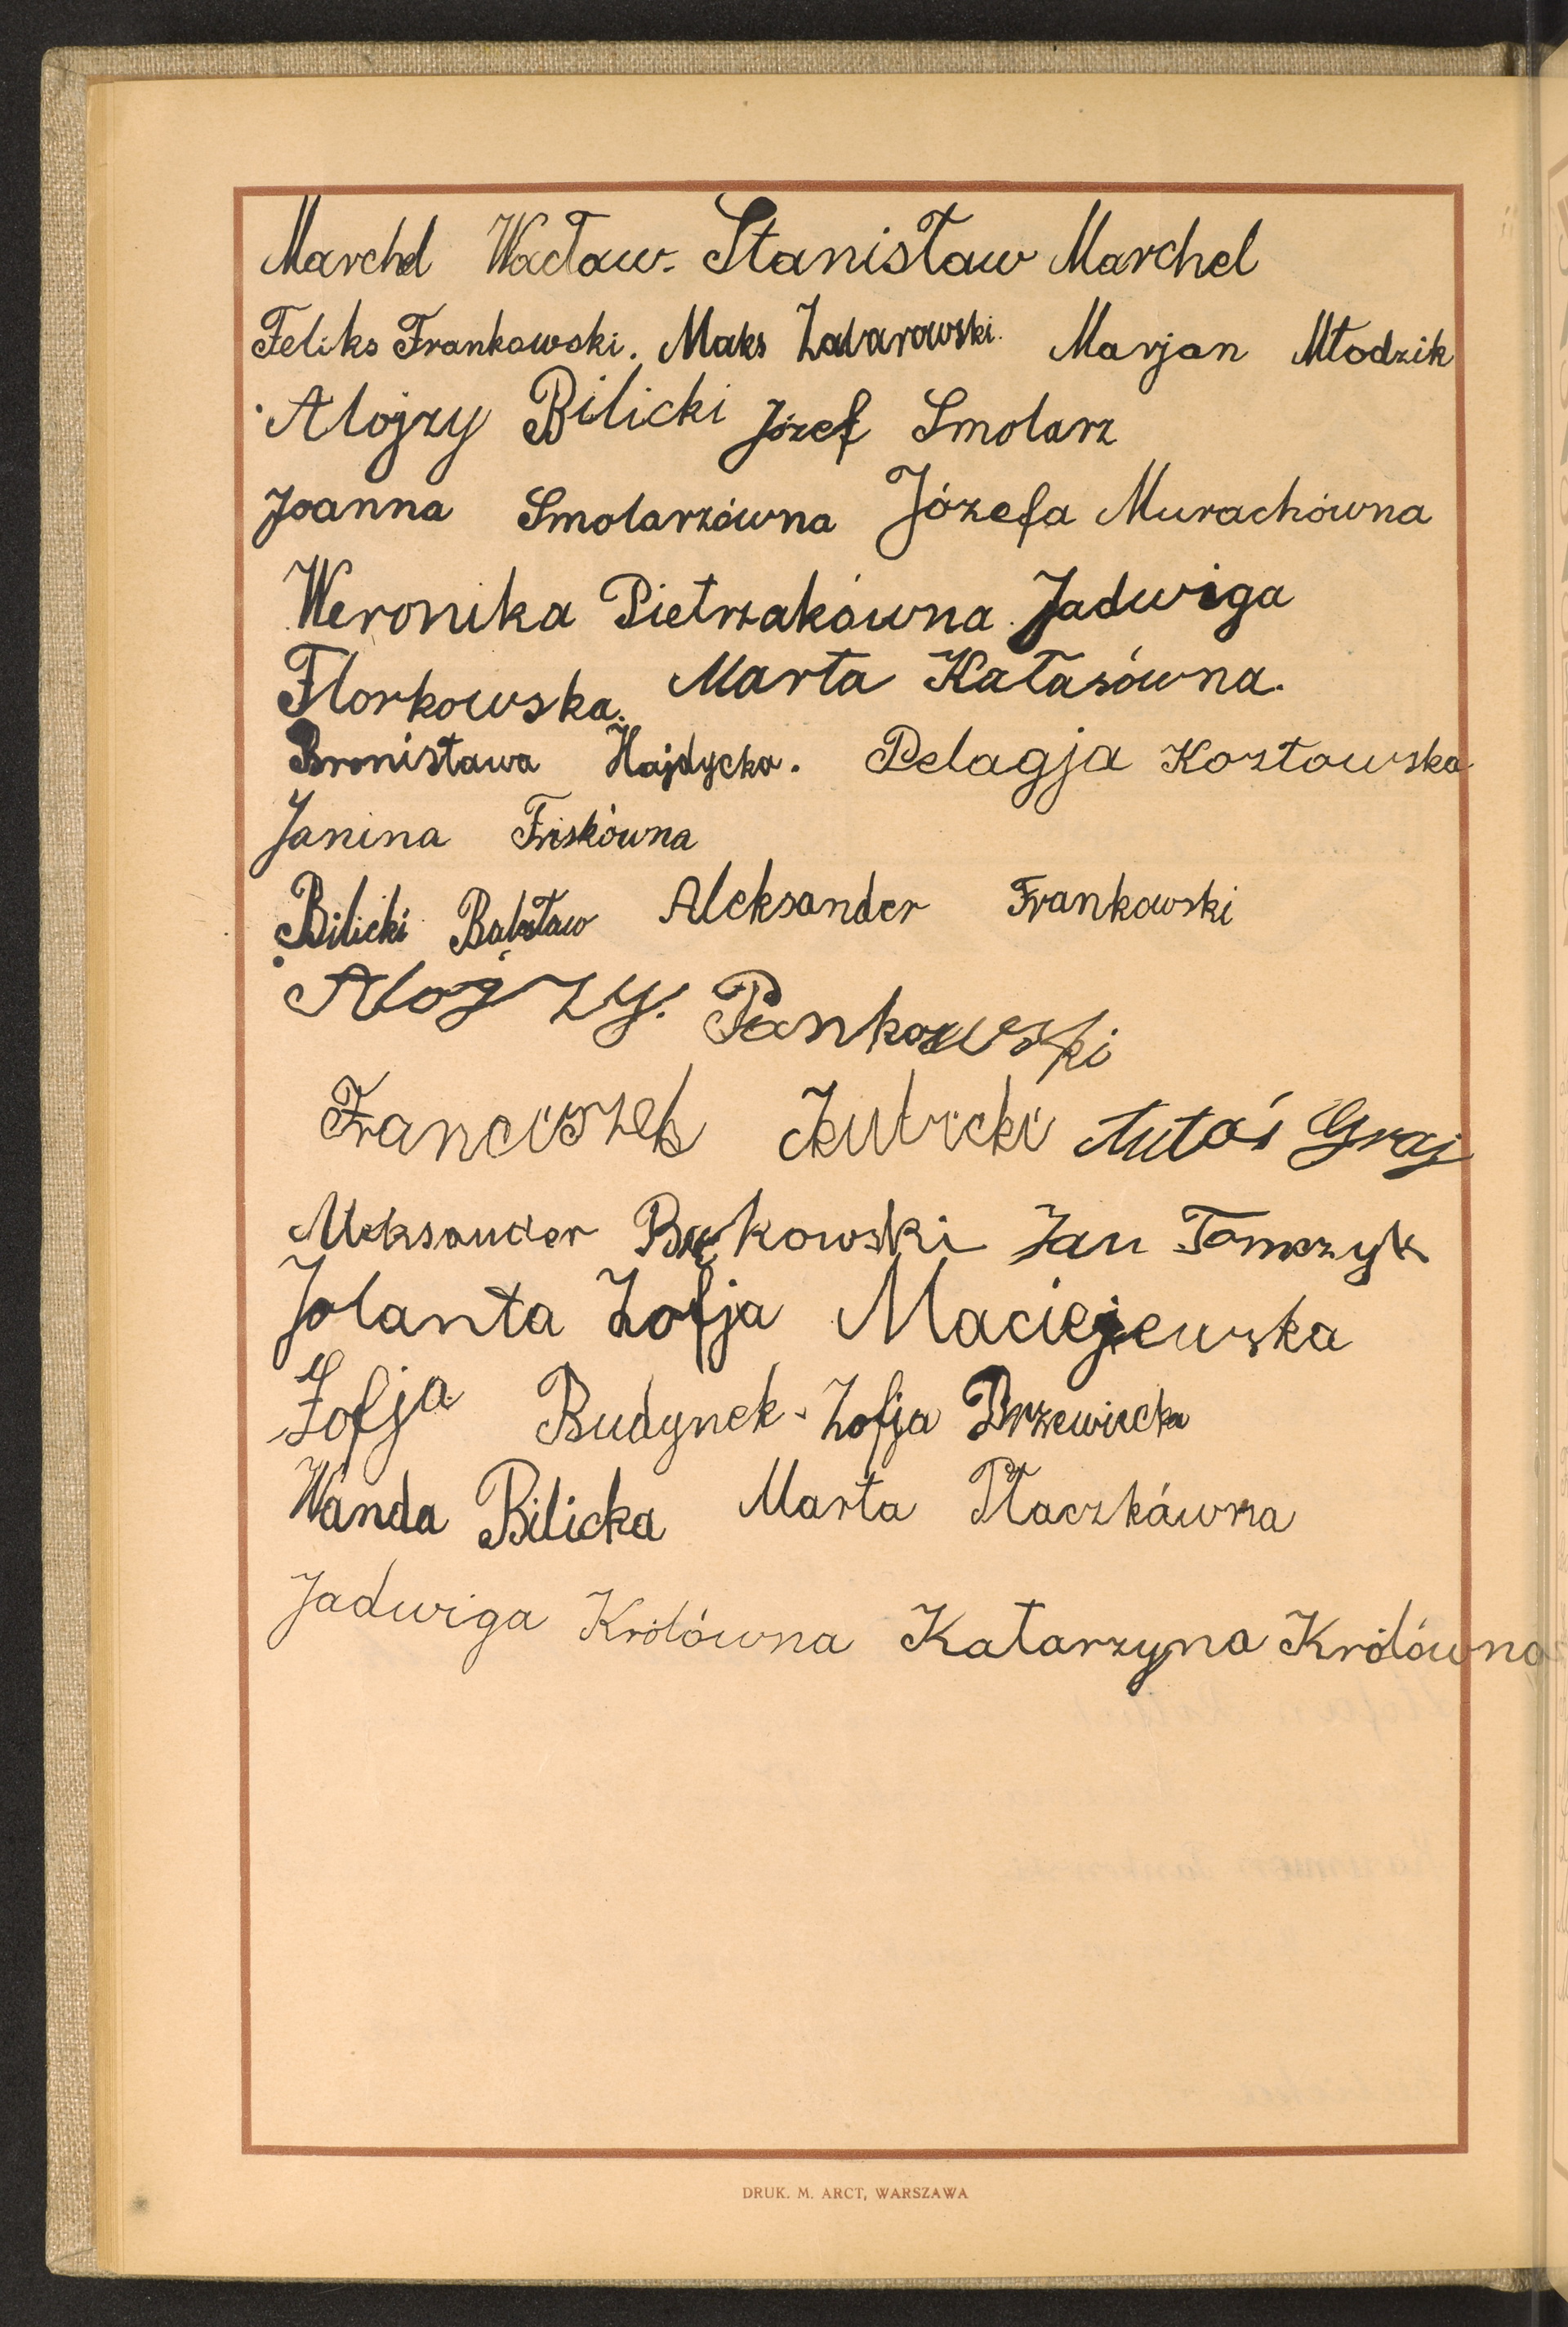 Marchel Wacław. Stanisław Marchel
Feliks Frankowski. Maks Zabarowski. Marjan Młodzik
Alojzy Bilicki Józef Smolarz
Joanna Smolarzówna Józefa Murachówna
Weronika Pietrzakówna. Jadwiga
Florkowska. Marta Kałasówna.
Bronisława Hajdycka. Pelagja Kozłowska
Janina Friskówna
Bilicki Aleksander Frankowski
Alojzy. Pankowski
Franciszek Graj
Aleksander Bukowski Jan Tomczyk
Jolanta Zofja Maciejewska
Zofja Budynek. Zofja Brzewiecka
Wanda Bilicka Marta Płaczkówna
Jadwiga Królówna Katarzyna Królówna
DRUK. M. ARCT, WARSZAWA